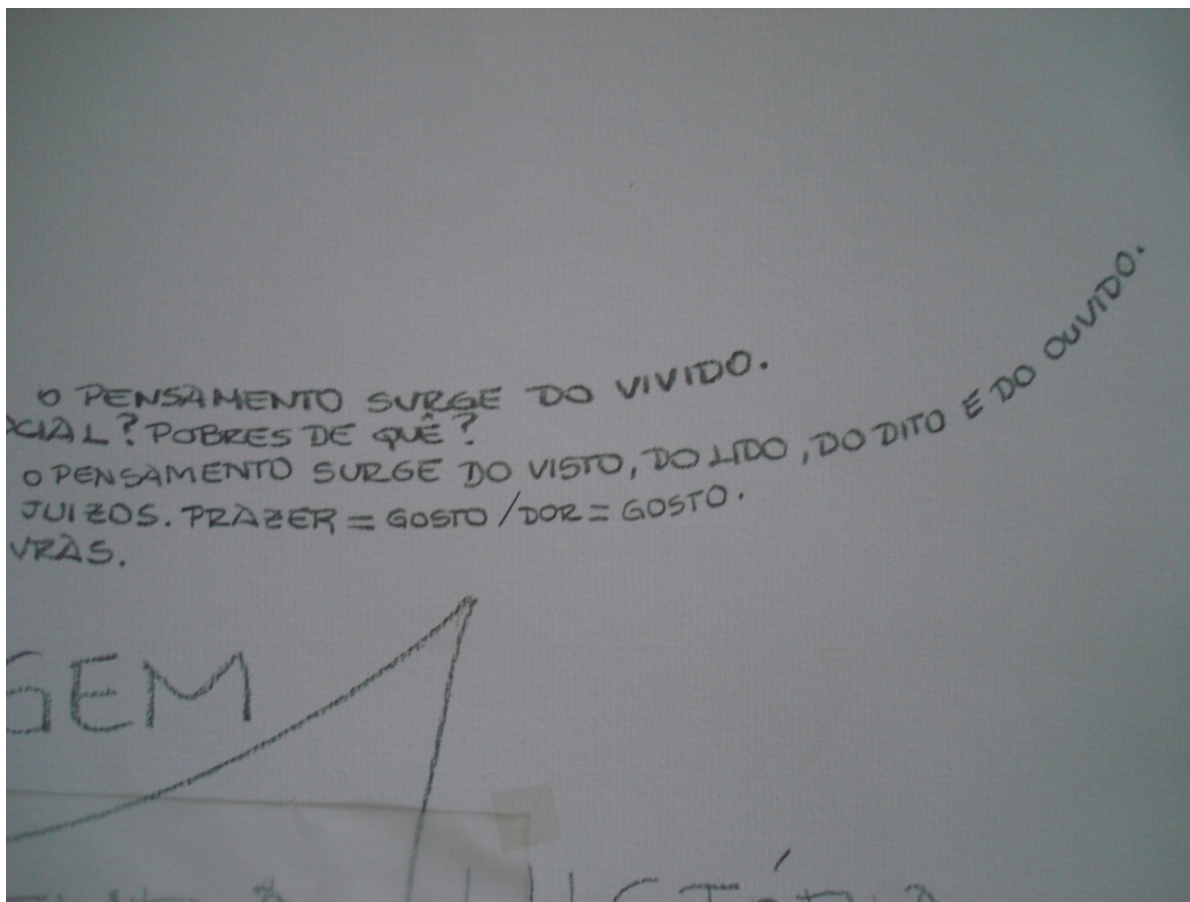 O PENSAMENTO SURGE DO VIVIDO.
CIAL? POBRES DE QUÊ?
O PENSAMENTO SURGE DO VISTO, DO LIDO, DO DITO E DO OUVIDO.
JUIZOS. PRAZER = GOSTO / DOR = GOSTO.
VRAS.
GEM